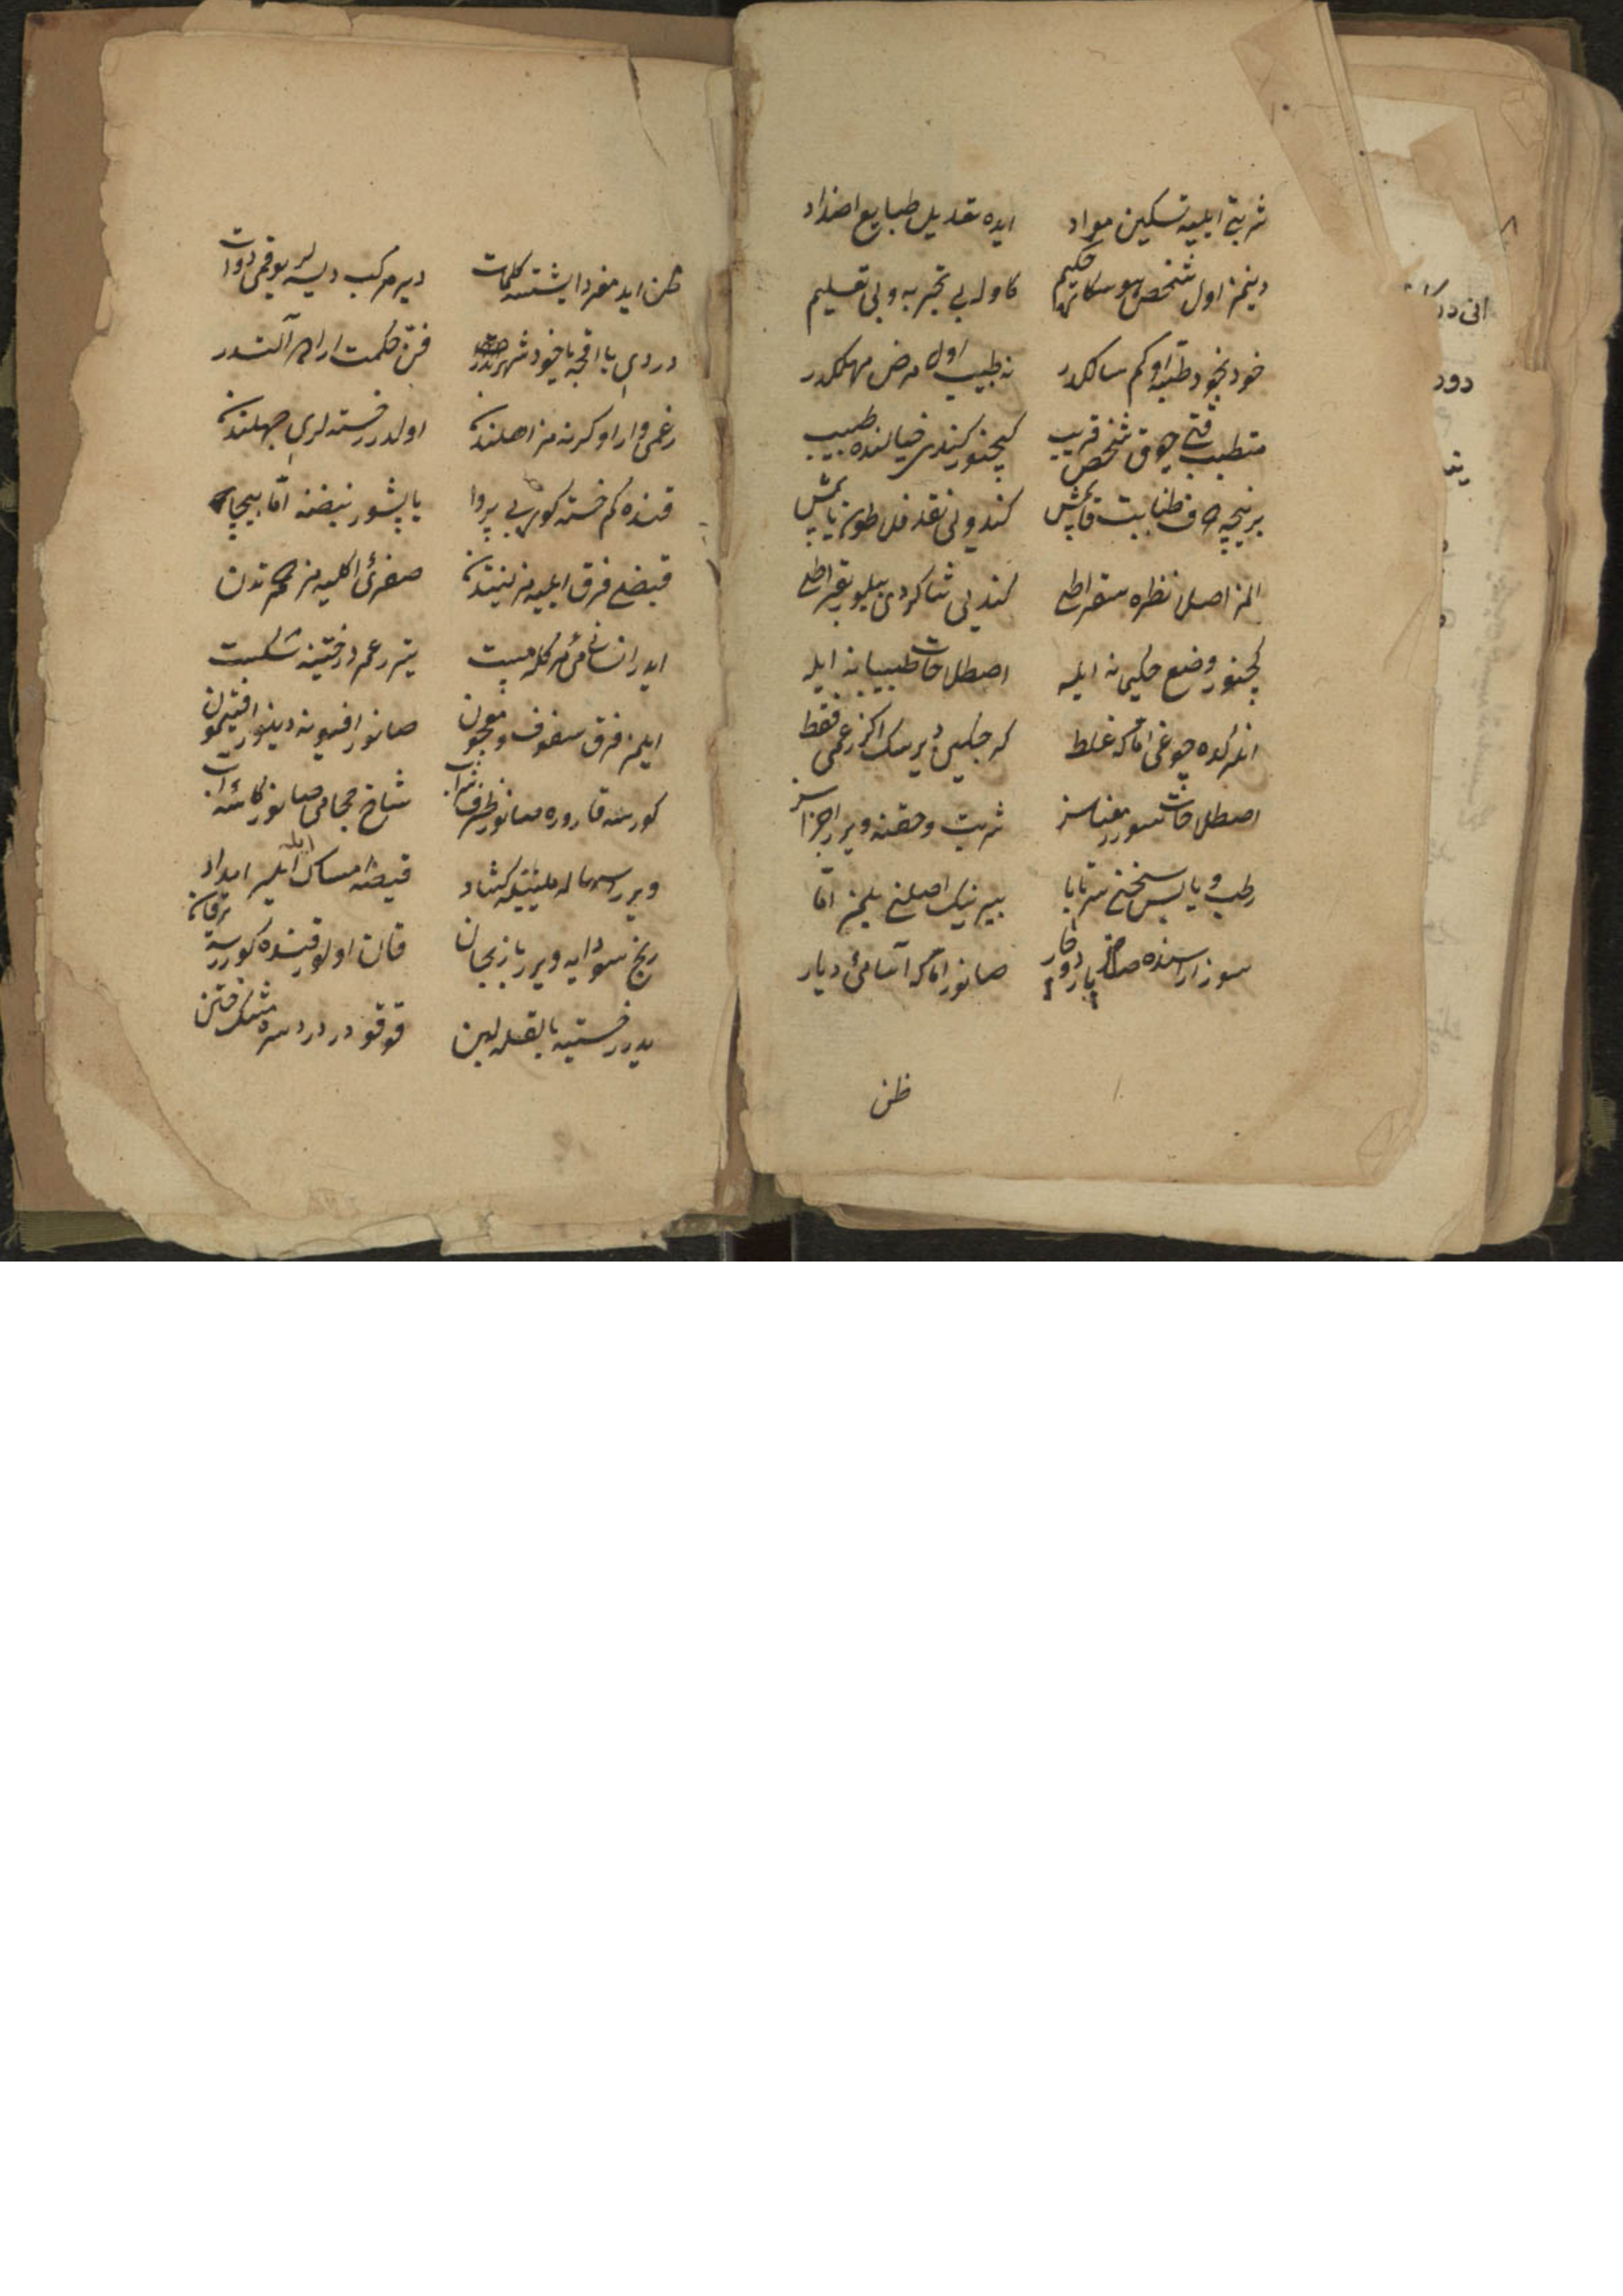 شربتی ایلیه تسکین مواد ایده تعدیل طبایع اضداد
دینمز اول شخص هوسکاره حکیم کاوله بی تجربه و بی تعلیم
خود بخود طبه او کم سالکدر نه طبیب اول مرض مهلکدر
متطبب قتی چوق شخص قریب کچنور کندی خیالنده طبیب
برنیجه طبابت قاپمش کندونی نقد فلاطون یاپمش
المز اصلا نظره سقراطی کندینی شاکردی بیلور بقراطی
کچنور وضع حکیمانه ایله اصطلاحات طبیبانه ایله
انلرکده چوغی اما که غلط که حکیمی دیرسک اکثر زعمی فقط
اصطلاحات سورر معناسز شربت و حقنه ویرر اجزاسز
رطب و یابس سخنی سرتاپا بیرینک اصلنی بیلمز اما
سوز اراسنده صاتار بارد و حار صانور اما که آسامئ دیار
ظن
ظن ایدر مفرد ایشتسه کلمات دیر مرکب دیسه لر یوقمی دوات
دردی یا اقچه یاخود شهرتدر فن حکمت ارا یرده آلتدر
زعمی وار اوکرنه مز اهلندن اولدرر خسته لری جهلندن
قنده کم خسته کورر بی پروا یاپشور نبضنه اما بیجا
قبضی فرق ایلیه مز لینتدن صفرئی اکلیه مز حمرتدن
ایدر انسانی مئ کله مست یتر زعم درختینه شکست
ایلمز فرق سفوف و معجون صانور افیونه دینور افتیمون
کورسه قاروره صانور ظرف شراب شاخ حجامی صانور کاسه آب
ویرر اسهاله ملینله کشاد قبضه امساک ایله ایلر امداد
رنج سودایه ویرر بازنجان قان اولور قنده کورسه یرقان
یدرر خستیه بالقله لبن قوقودر درد سره مشک ختن